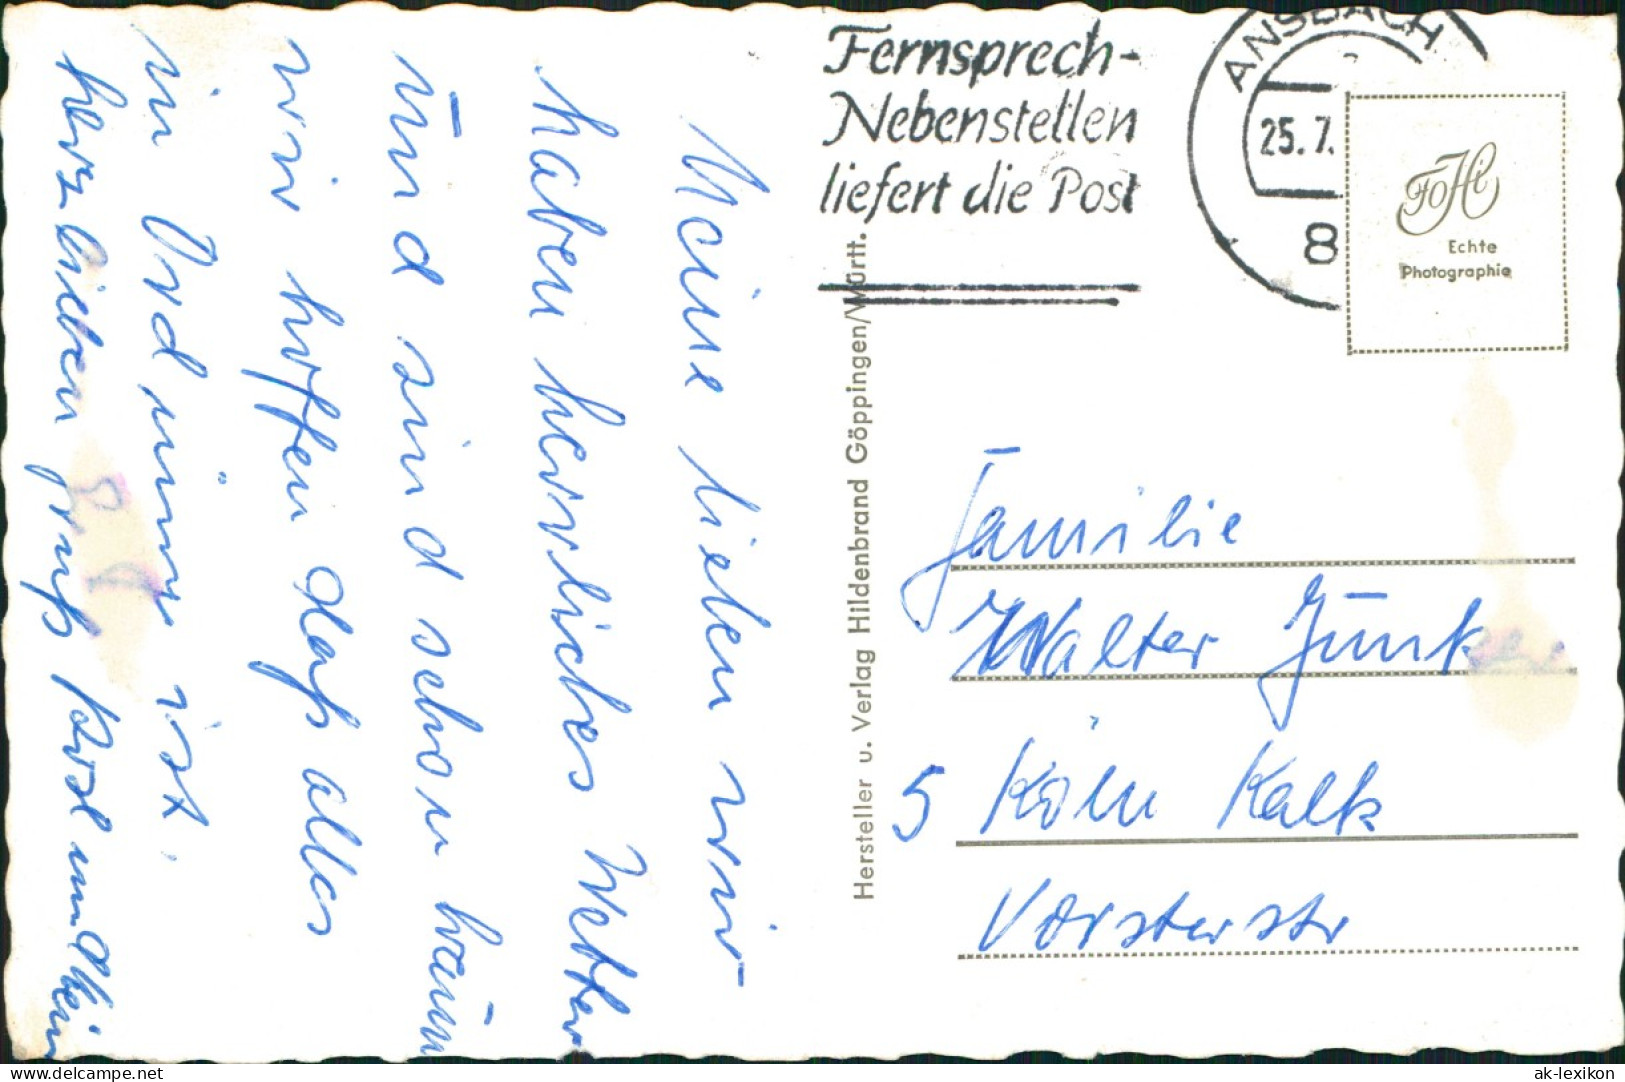 Meine lieben wir
haben herrliches Wetter
und sind schon braun
wir hoffen daß alles
in Ordnung ist.
herz lieben gruß
Fernsprech-
Nebenstellen
liefert die Post
ANSBACH
25.7.
8
FoHi
Echte
Photographie
Hersteller u. Verlag Hildenbrand Göppingen/Württ.
Familie
Walter Junk
5 Köln Kalk
Vorsterstr
delcampe.net
ak-lexikon